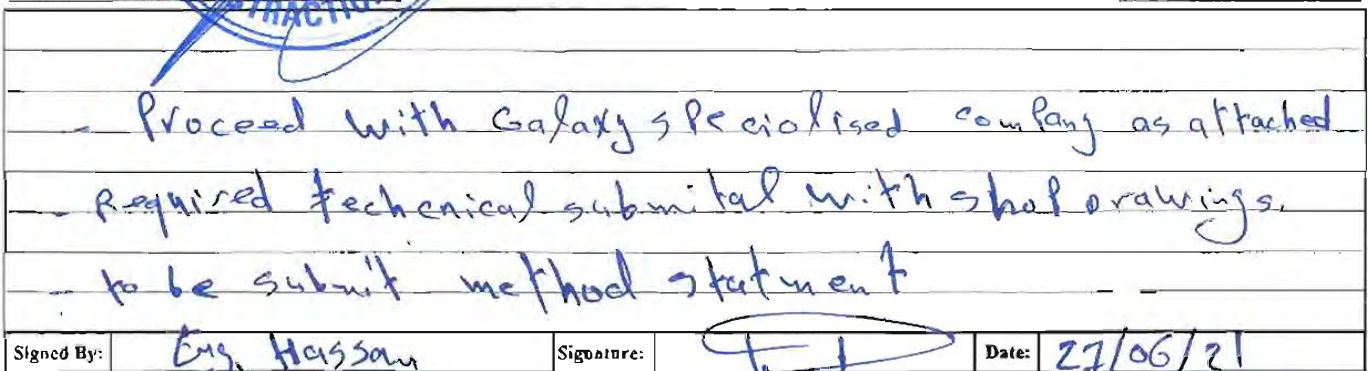 TRACTIO
- Proceed with Galaxy specialised company as attached
- Required techenical submital with shop drawings.
- to be submit method statment - -
Signed By: Eng. Hassan Signature: Date: 27/06/21